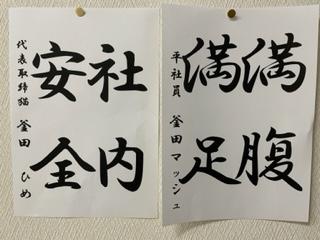 社内
安全
代表取締猫 釜田 ひめ
満腹
満足
平社員 釜田 マッシュ